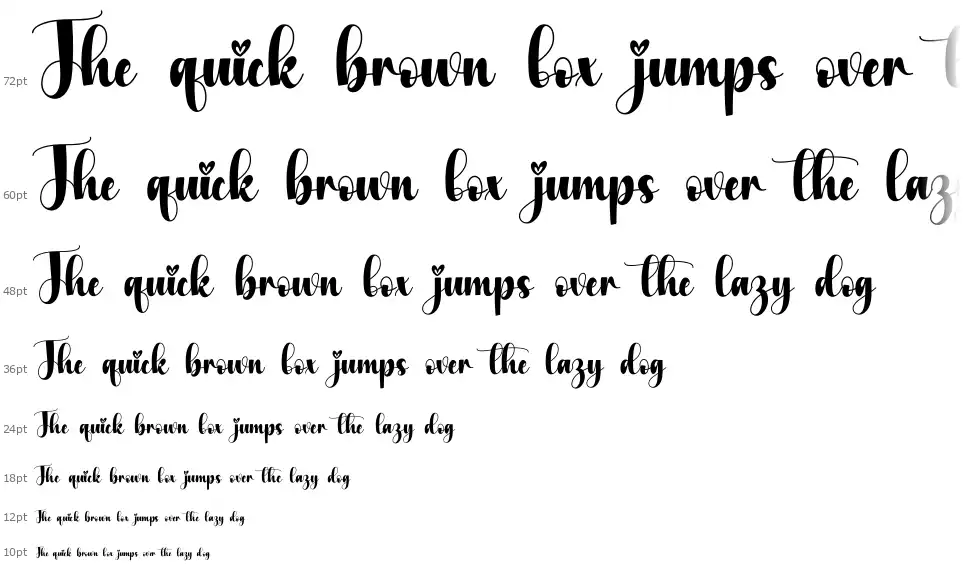 72pt The quick brown fox jumps over
60pt The quick brown fox jumps over the laz
48pt The quick brown fox jumps over the lazy dog
36pt The quick brown fox jumps over the lazy dog
24pt The quick brown fox jumps over the lazy dog
18pt The quick brown fox jumps over the lazy dog
12pt The quick brown fox jumps over the lazy dog
10pt The quick brown fox jumps over the lazy dog